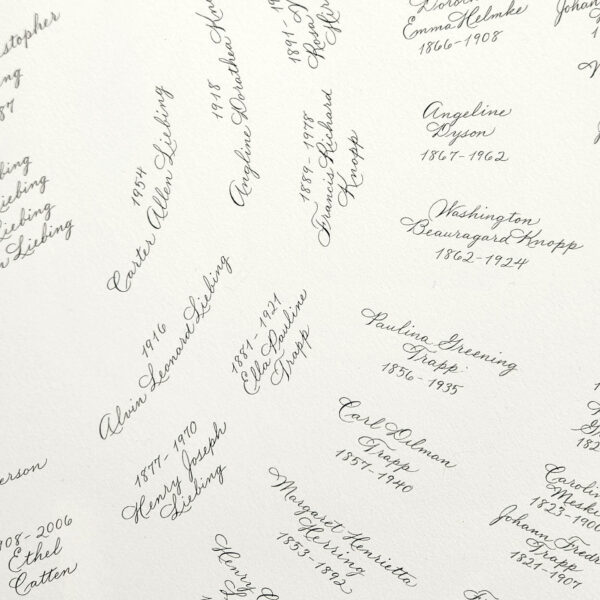 stopher
ng
87
Liebing
Liebing
Liebing
1954
Carter Allen Liebing
1918
Angline Dorothea
1891-1
Rosa
1889-1978
Francis Richard
Knopp
Emma Helmke
1866-1908
Angeline
Dyson
1867-1962
Washington
Beauragard Knopp
1862-1924
1916
Alvin Leonard Liebing
1881-1921
Ella Pauline
Trapp
Paulina Greening
Trapp
1856-1935
1877-1970
Henry Joseph
Liebing
Carl Dilman
Trapp
1857-1940
erson
908-2006
Ethel
Catten
Margaret Henrietta
Herring
1853-1892
Henry
182
Carolin
Mesk
1823-190
Johann Fredr
Trapp
1821-1907